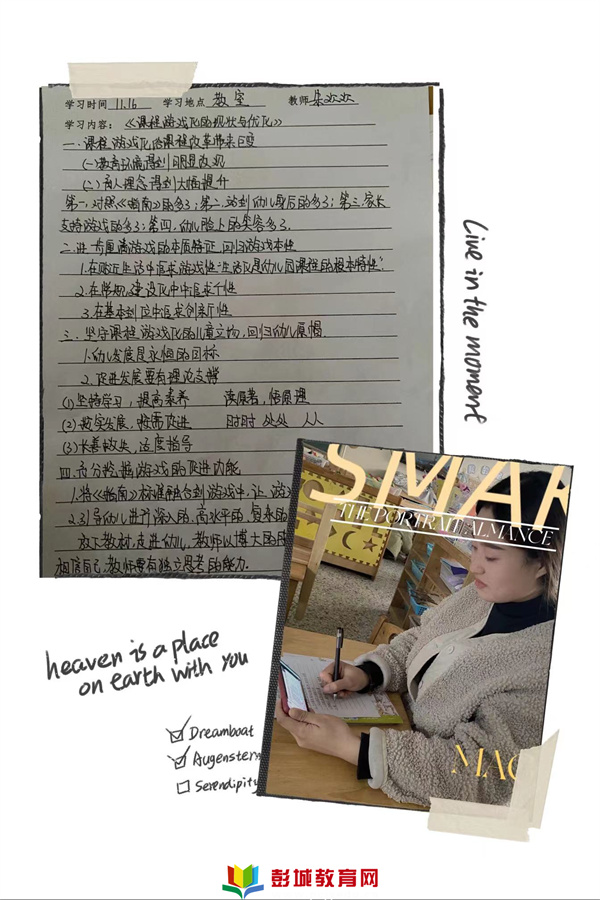 学习时间 11.16 学习地点 教室 教师 朱欢欢
学习内容：《课程游戏化的现状与优化》
一、课程游戏化给课程改革带来巨变
(一)教育环境得到明显改观
(二)育人理念得到大幅提升
第一，对照《指南》的多了；第二，站到幼儿身后的多了；第三，家长
支持游戏的多了；第四，幼儿脸上的笑容多了.
二、进一步厘清游戏的本质特征，回归游戏本性
1.在贴近生活中追求游戏性“生活化是幼儿园课程的根本特性”.
2.在常规建设化中中追求个性
3.在基本到位中追求创新性
三、坚守课程游戏化的儿童立场，回归幼儿原帽.
1.幼儿发展是永恒的目标
2.促进发展要有理论支撑
(1)坚持学习，提高素养 读原著，悟原理
(2)按实发展，按需促进 时时 处处 人人
(3)长善救失，适度指导
四、充分挖掘游戏的促进内能
1.将《指南》标准融合到游戏中，让 游
2.引导幼儿进行深入的、高水平的、复杂的
放下教材，走进幼儿，教师以博大的
相信自己，教师要有独立思考的能力.
Live in the moment
SMAR
THE PORTRAIT ALMANCE
MAG
heaven is a place
on earth with you
Dreamboat
Augenstern
Serendipity
彭城教育网